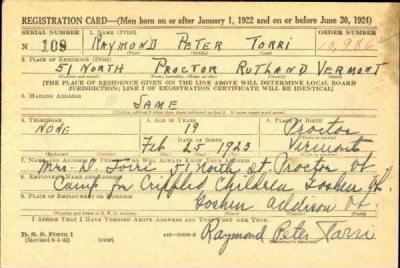 REGISTRATION CARD—(Men born on or after January 1, 1922 and on or before June 30, 1924)
SERIAL NUMBER 1. NAME (Print) ORDER NUMBER
N 109 RAYMOND PETER TORRI 10,986
2. PLACE OF RESIDENCE (Print)
51 NORTH PROCTOR RUTLAND VERMONT
[THE PLACE OF RESIDENCE GIVEN ON THE LINE ABOVE WILL DETERMINE LOCAL BOARD
JURISDICTION; LINE 2 OF REGISTRATION CERTIFICATE WILL BE IDENTICAL]
3. MAILING ADDRESS
SAME
4. TELEPHONE 5. AGE IN YEARS
NONE 19 Proctor
DATE OF BIRTH
Feb 25 1923 Vermont
7. NAME AND ADDRESS OF PERSON WHO WILL ALWAYS KNOW YOUR ADDRESS
Mrs. D. Torri 51 North St. Proctor Vt
8. EMPLOYER'S NAME AND ADDRESS
Camp for Crippled Children Goshen Vt.
9. PLACE OF EMPLOYMENT OR BUSINESS
Goshen Addison Vt.
I AFFIRM THAT I HAVE VERIFIED ABOVE ANSWERS AND THAT THEY ARE TRUE.
D. S. S. Form 1
(over)
Raymond Peter Torri